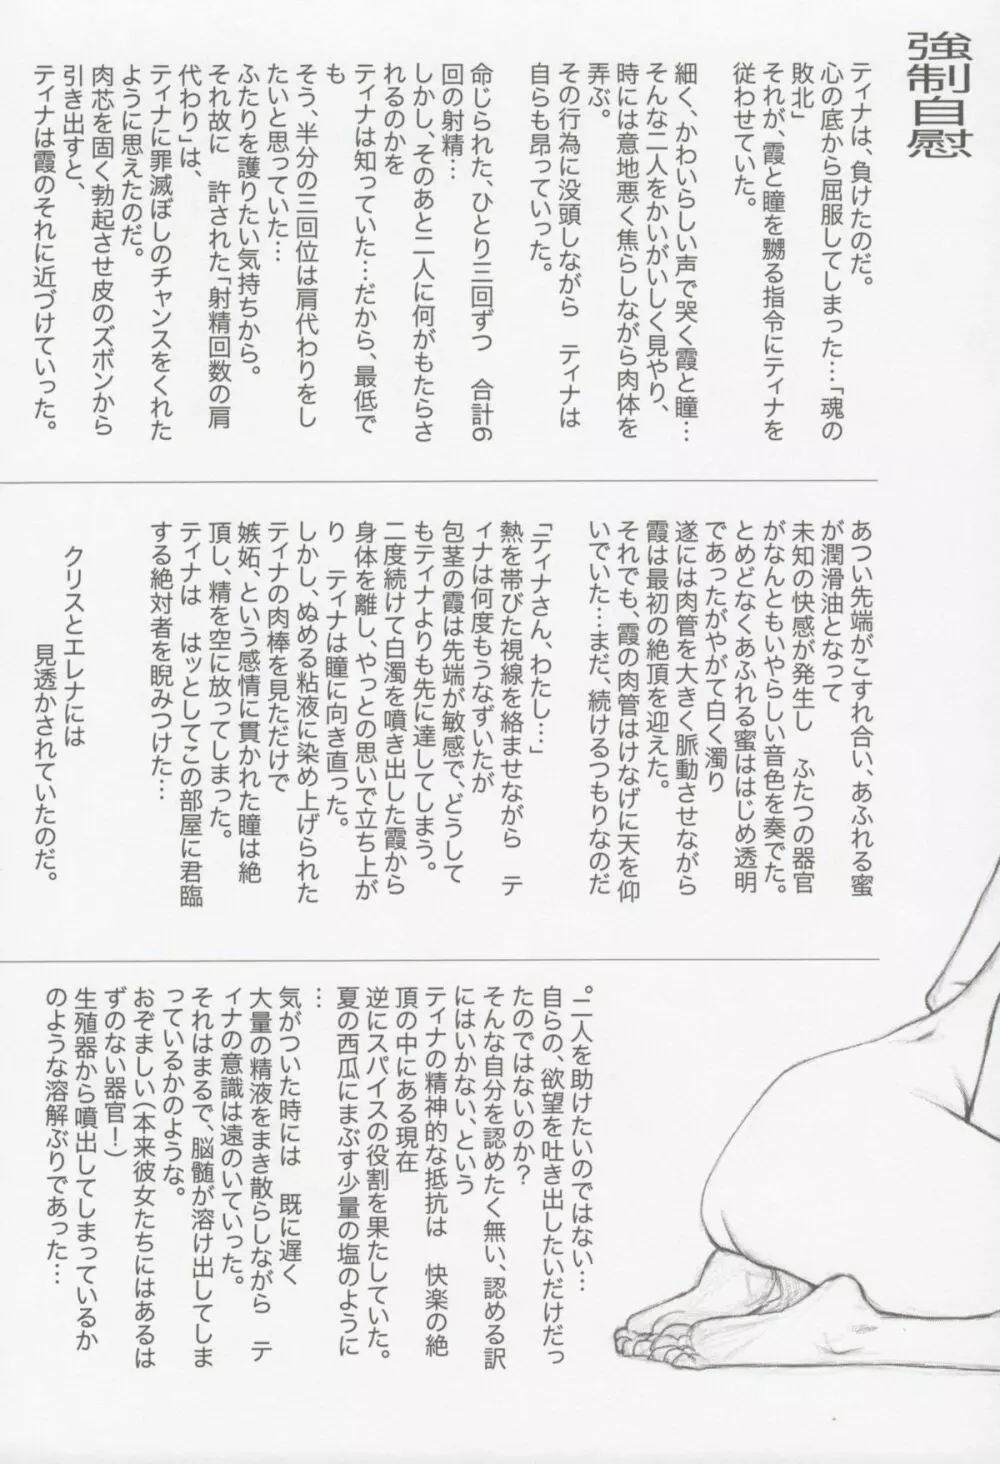 強制自慰
ティナは、負けたのだ。
心の底から屈服してしまった…「魂の
敗北」
それが、霞と瞳を嬲る指令にティナを
従わせていた。
細く、かわいらしい声で哭く霞と瞳…
そんな二人をかいがいしく見やり、
時には意地悪く焦らしながら肉体を
弄ぶ。
その行為に没頭しながら　ティナは
自らも昂っていった。
命じられた、ひとり三回ずつ　合計6
回の射精…
しかし、そのあと二人に何がもたらさ
れるのかを
ティナは知っていた…だから、最低で
も
そう、半分の三回位は肩代わりをし
たいと思っていた…
ふたりを護りたい気持ちから。
それ故に　許された「射精回数の肩
代わり」は、
ティナに罪滅ぼしのチャンスをくれた
ように思えたのだ。
肉芯を固く勃起させ皮のズボンから
引き出すと、
ティナは霞のそれに近づけていった。
あつい先端がこすれ合い、あふれる蜜
が潤滑油となって
未知の快感が発生し　ふたつの器官
がなんともいやらしい音色を奏でた。
とめどなくあふれる蜜ははじめ透明
であったがやがて白く濁り
遂には肉管を大きく脈動させながら
霞は最初の絶頂を迎えた。
それでも、霞の肉管はけなげに天を仰
いでいた…まだ、続けるつもりなのだ
「ティナさん、わたし…」
熱を帯びた視線を絡ませながら　テ
ィナは何度もうなずいたが
包茎の霞は先端が敏感で、どうして
もティナよりも先に達してしまう。
二度続けて白濁を噴き出した霞から
身体を離し、やっとの思いで立ち上が
り　ティナは瞳に向き直った。
しかし、ぬめる粘液に染め上げられた
ティナの肉棒を見ただけで
嫉妬、という感情に貫かれた瞳は絶
頂し、精を空に放ってしまった。
ティナは　はッとしてこの部屋に君臨
する絶対者を睨みつけた…
クリスとエレナには
見透かされていたのだ。
。二人を助けたいのではない…
自らの、欲望を吐き出したいだけだっ
たのではないのか？
そんな自分を認めたく無い、認める訳
にはいかない、という
ティナの精神的な抵抗は　快楽の絶
頂の中にある現在
逆にスパイスの役割を果たしていた。
夏の西瓜にまぶす少量の塩のように
…
気がついた時には　既に遅く
大量の精液をまき散らしながら　テ
ィナの意識は遠のいていった。
それはまるで、脳髄が溶け出してしま
っているかのような。
おぞましい（本来彼女たちにはあるは
ずのない器官！）
生殖器から噴出してしまっているか
のような溶解ぶりであった…